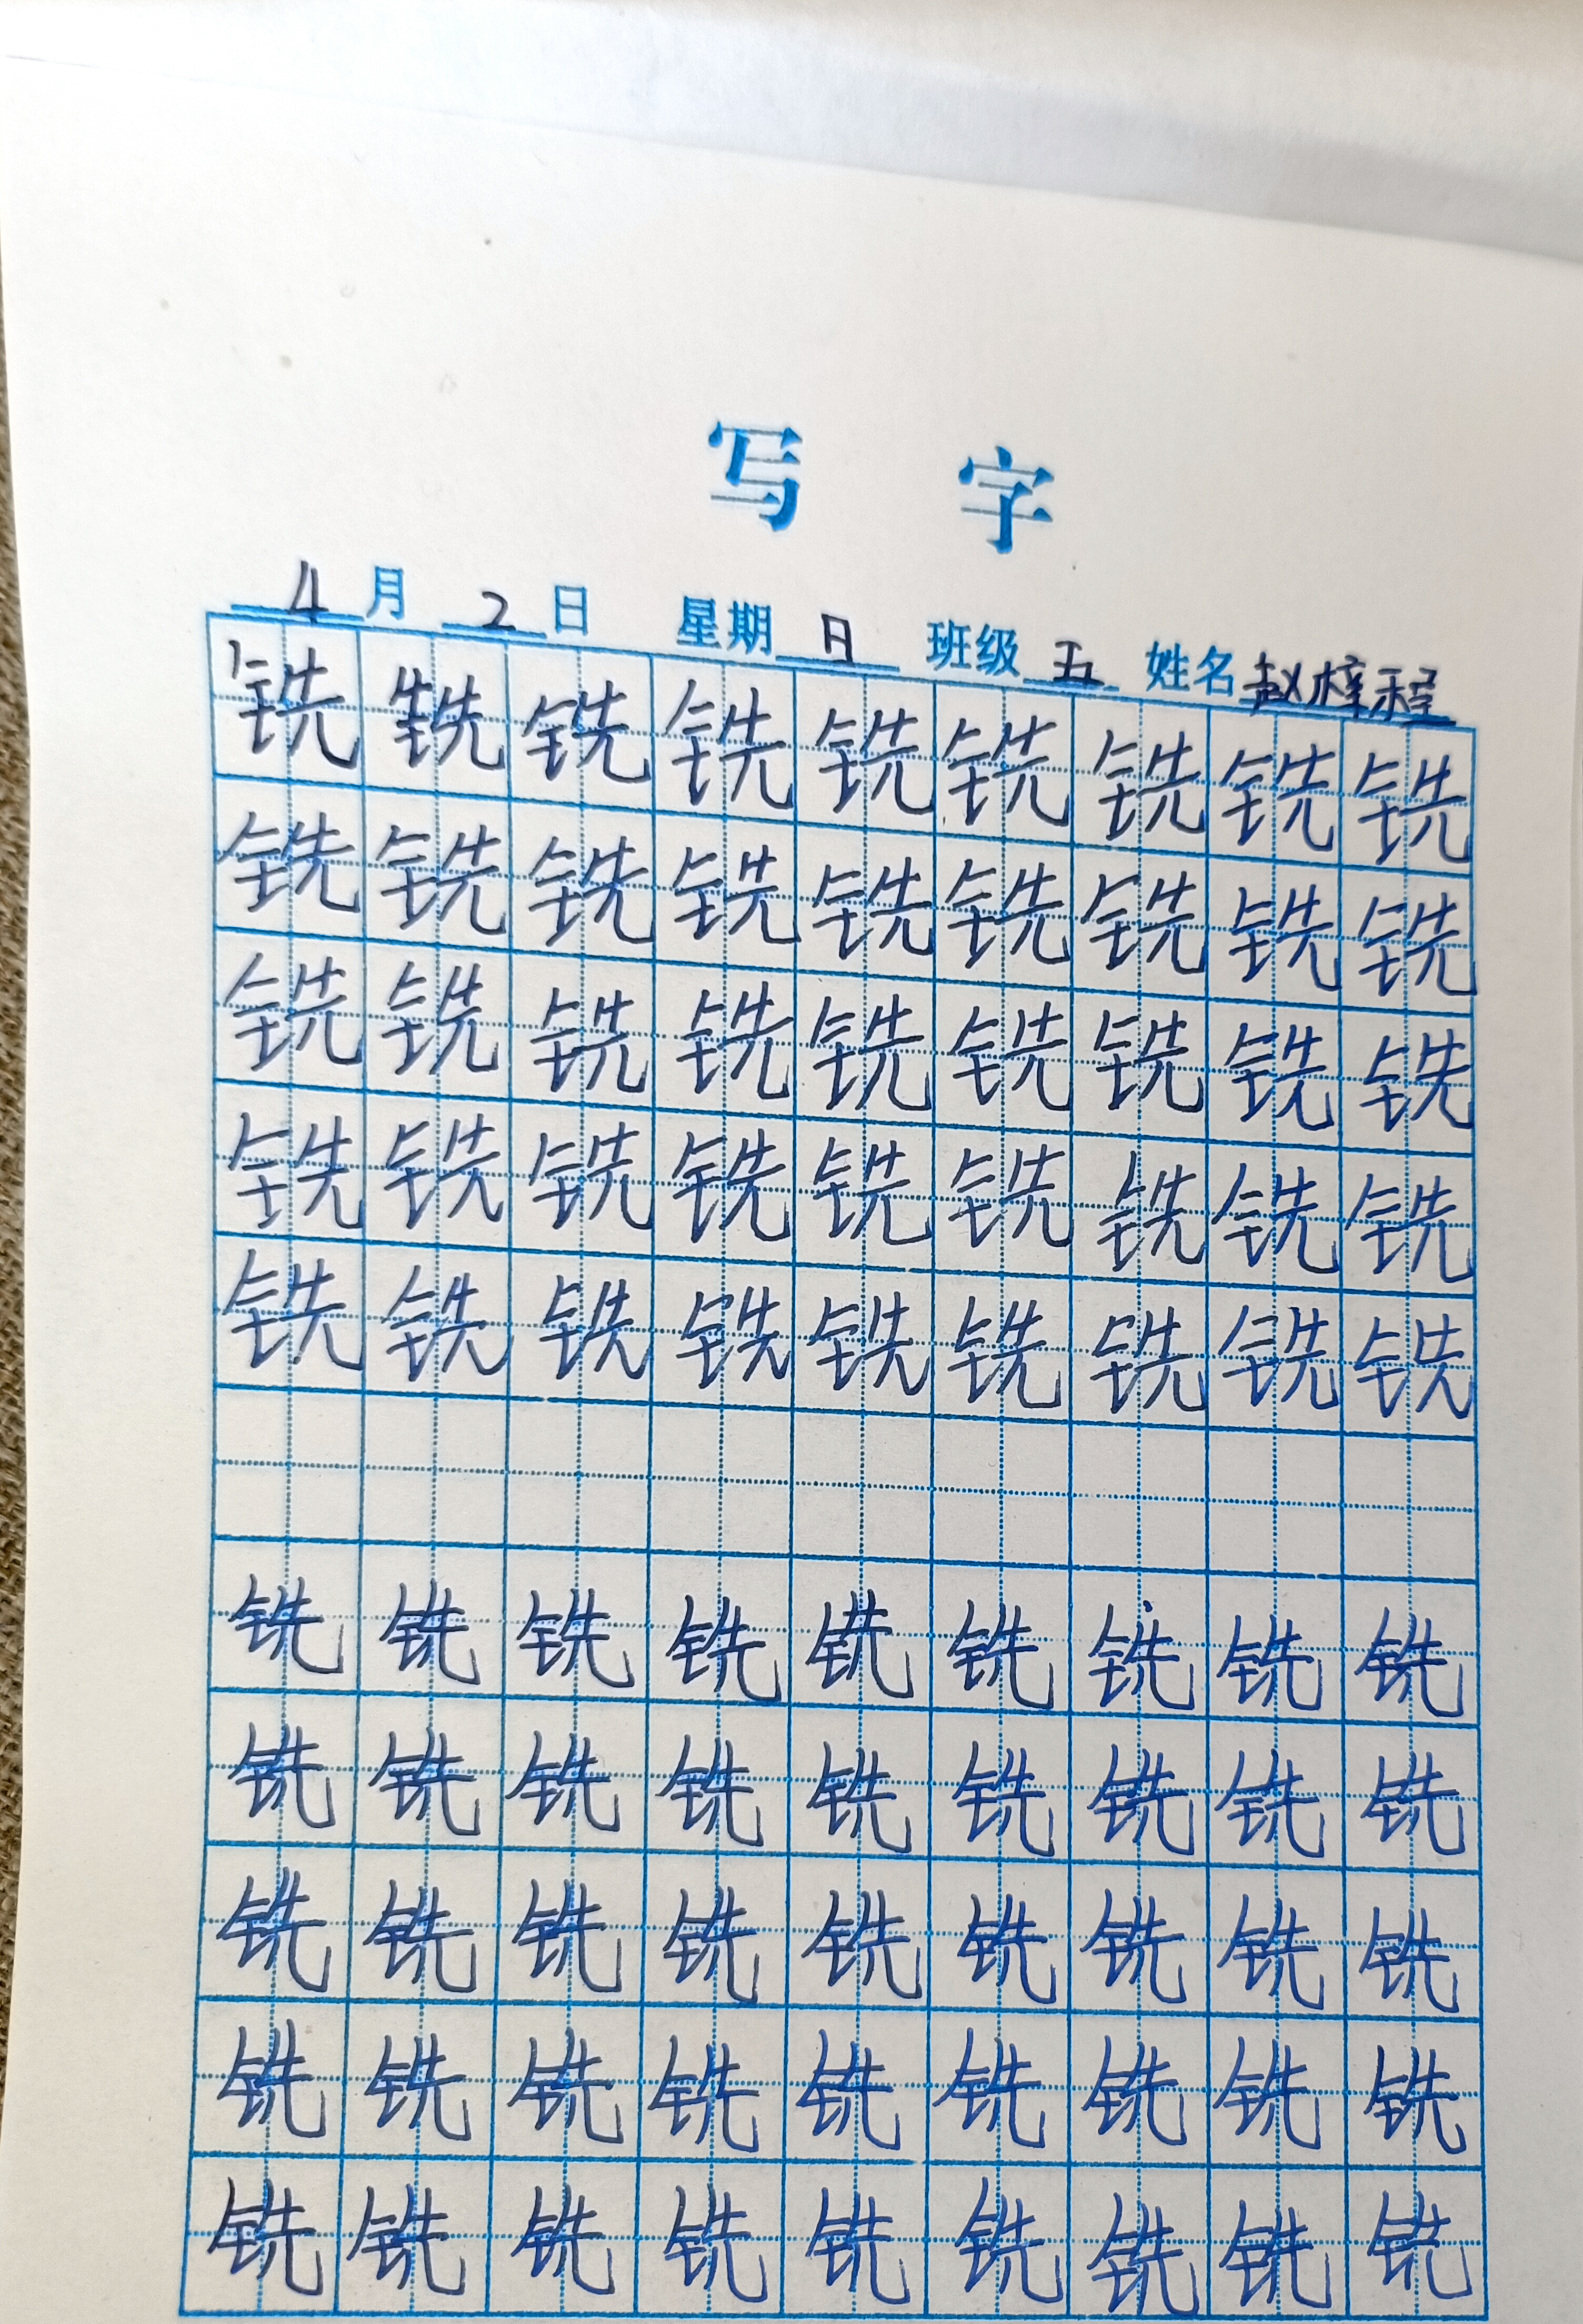 写 字
4月2日 星期日 班级五 姓名赵梓程
铣铣铣铣铣铣铣铣铣
铣铣铣铣铣铣铣铣铣
铣铣铣铣铣铣铣铣铣
铣铣铣铣铣铣铣铣铣
铣铣铣铣铣铣铣铣铣
铣铣铣铣铣铣铣铣铣
铣铣铣铣铣铣铣铣铣
铣铣铣铣铣铣铣铣铣
铣铣铣铣铣铣铣铣铣
铣铣铣铣铣铣铣铣铣